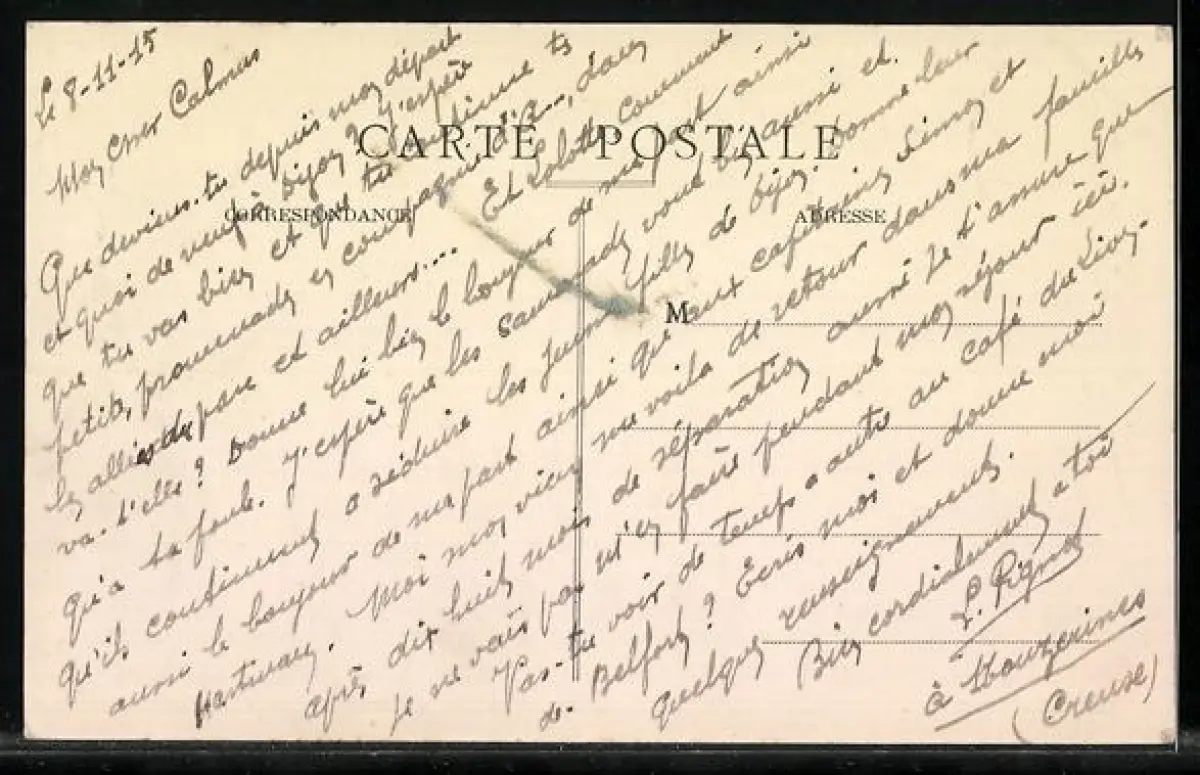 Le 8-11-15
Mon cher Calmus
Que deviens-tu depuis mon départ
et quoi de neuf à Dijon ? J'espère
que tu vas bien et que tu continue tes
petites promenades en compagnie d', dans
les allées du parc et ailleurs.... Et Lolotte, comment
va-t'elle ? Donne lui bien le bonjour de ma part ainsi
qu'à sa famille. J'espère que les camarades vont bien aussi et
qu'ils continuent a séduire les jeunes filles de Dijon. Donne-leur
aussi le bonjour de ma part ainsi qu'aux capitaines Simon et
Hartmann. Moi mon vieux me voila de retour dans ma famille
après dix huit mois de séparation aussi je t'assure que
je ne vais pas m'en faire pendant mon séjour ici.
Vas-tu voir de temps a autre au café du Lion
de Belfort ? Ecris moi et donne moi
quelques renseignements.
Bien cordialement a toi
L. Pignot
à
(Creuse)
CARTE POSTALE
CORRESPONDANCE
ADRESSE
M